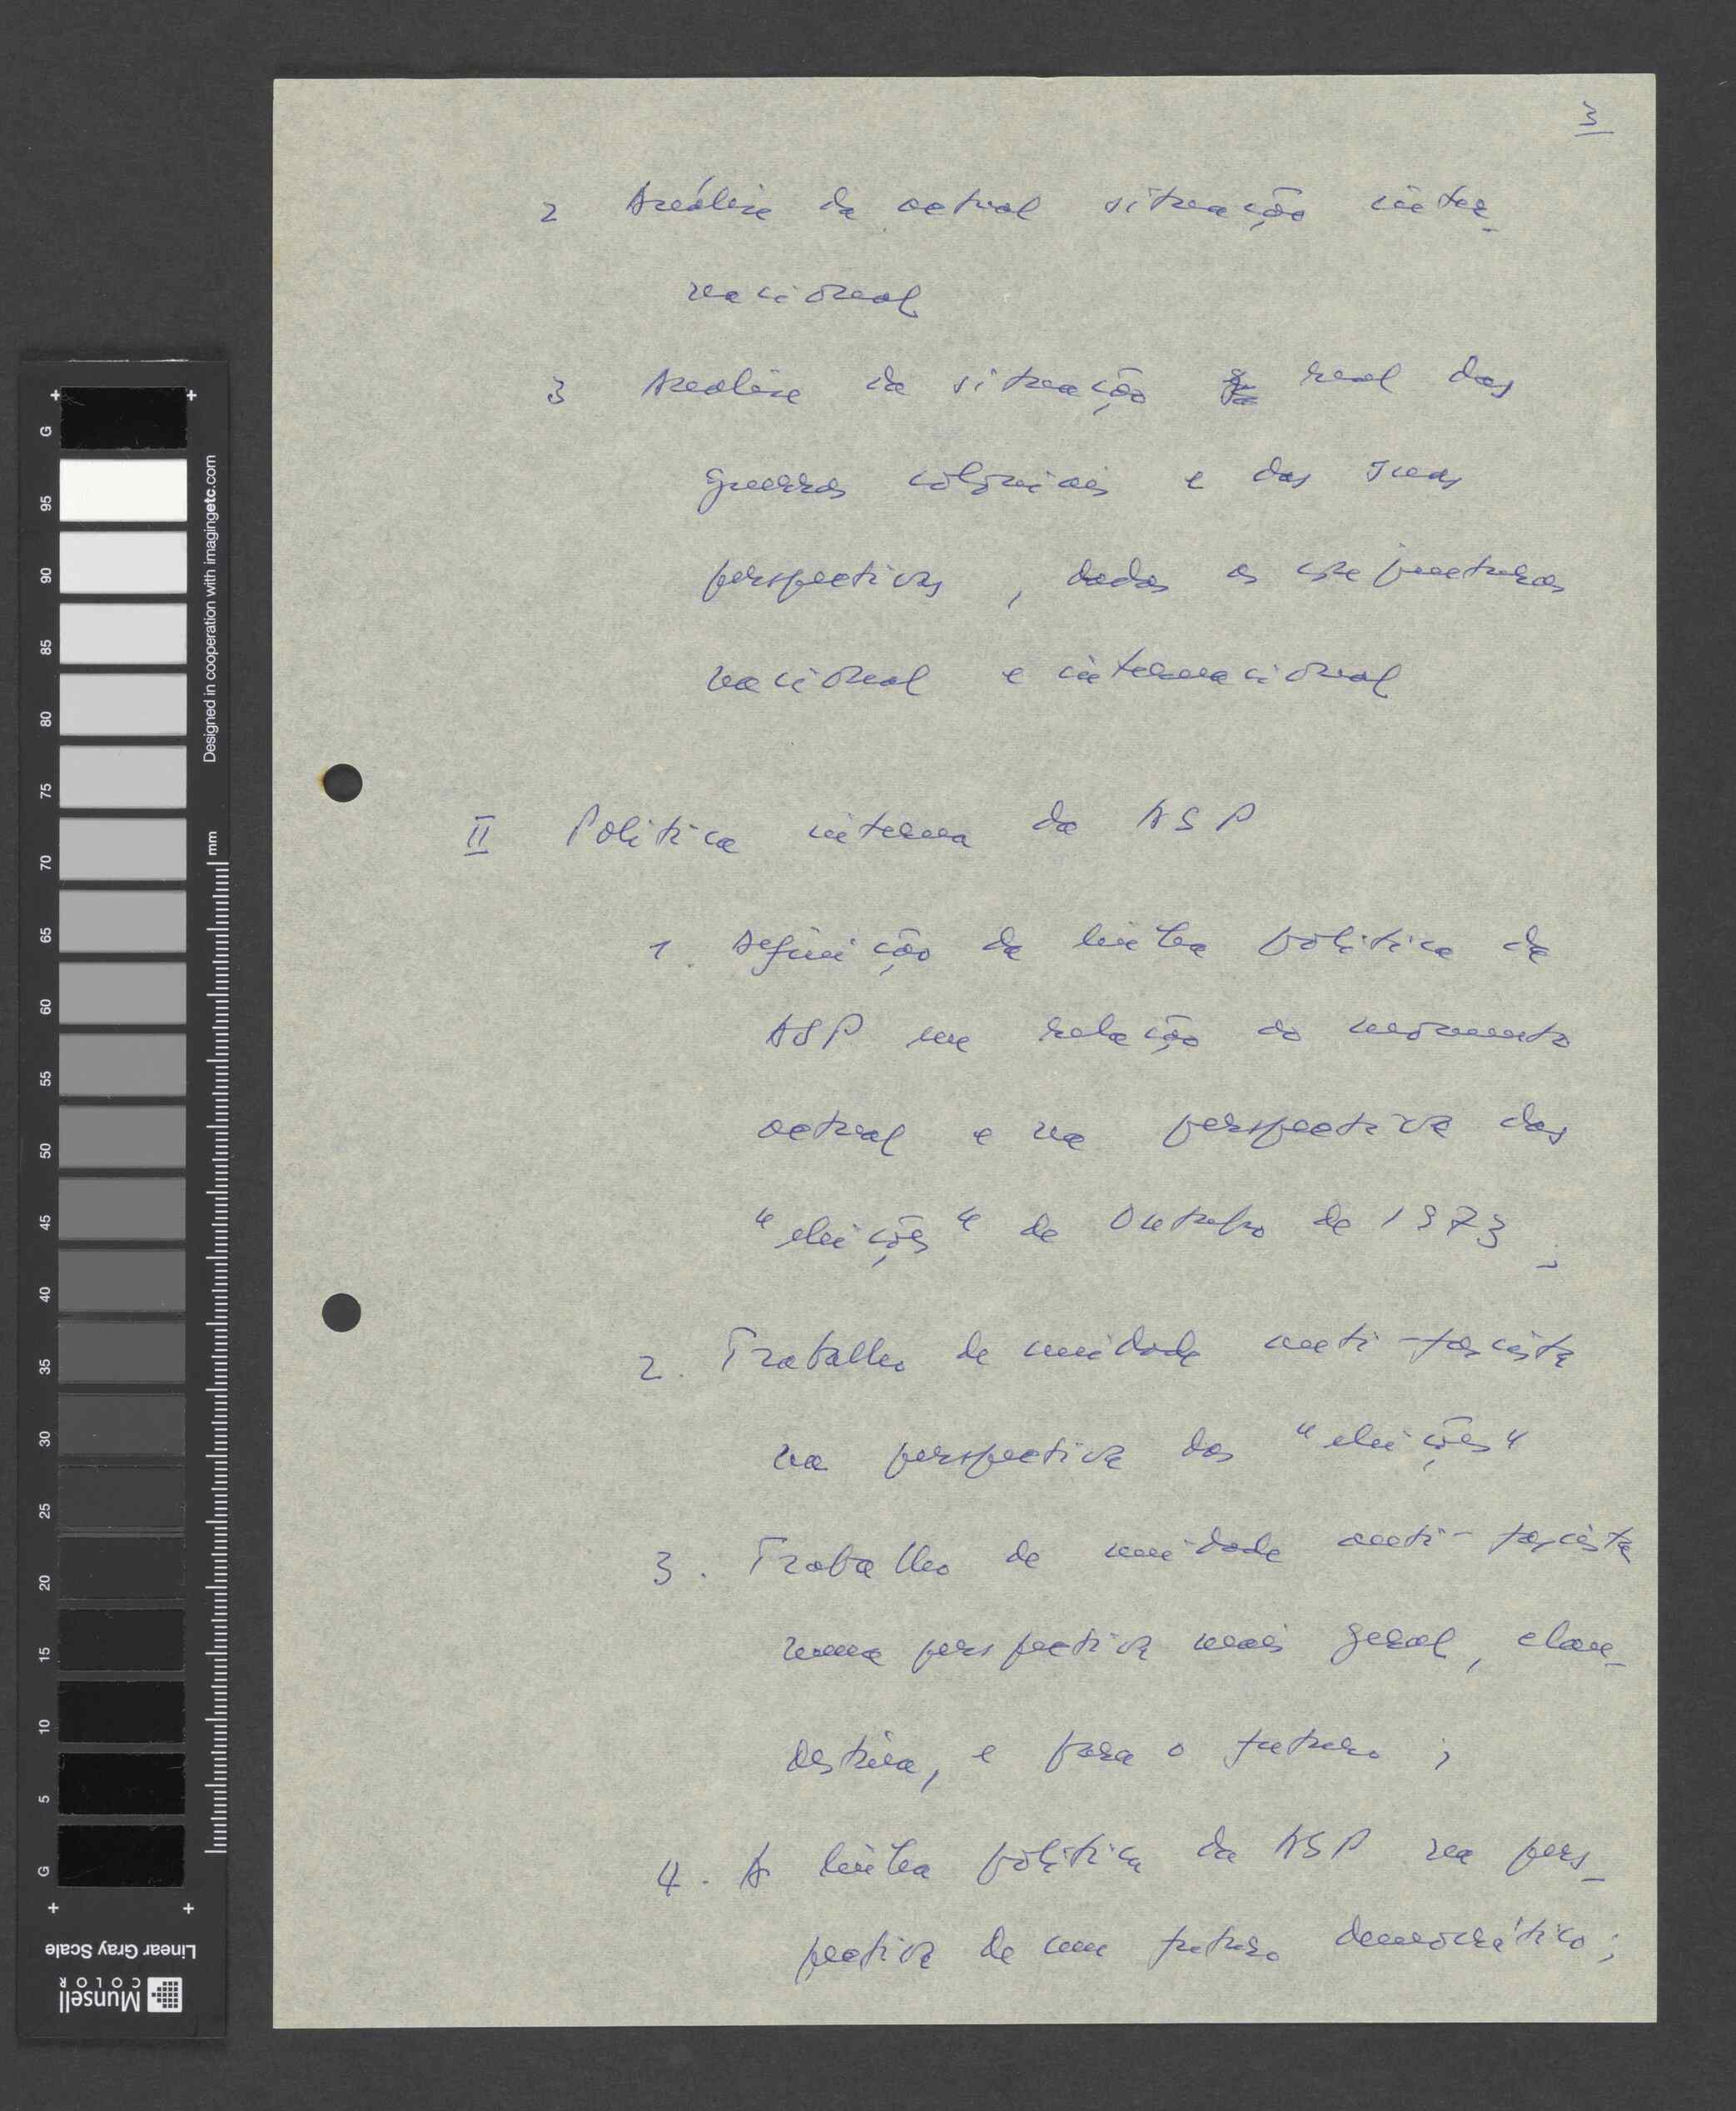 3
2 Análise da actual situação inter-
nacional
3 Analise da situação real das
guerras coloniais e das suas
perspectivas, dadas as conjunturas
nacional e internacional
II Politica interna da ASP
1. Definição da linha politica da
ASP em relação ao momento
actual e na perspectiva das
"eleições" de Outubro de 1973;
2. Trabalho de unidade anti-fascista
na perspectiva das "eleições"
3. Trabalho de unidade anti-fascista
numa perspectiva mais geral, clan-
destina, e para o futuro;
4. A linha politica da ASP na pers-
pectiva de um futuro democrático;
G
95
90
85
80
75
70
65
60
55
50
45
40
35
30
25
20
15
10
5
G
Designed in cooperation with imagingetc.com
mm
Linear Gray Scale
Munsell
COLOR